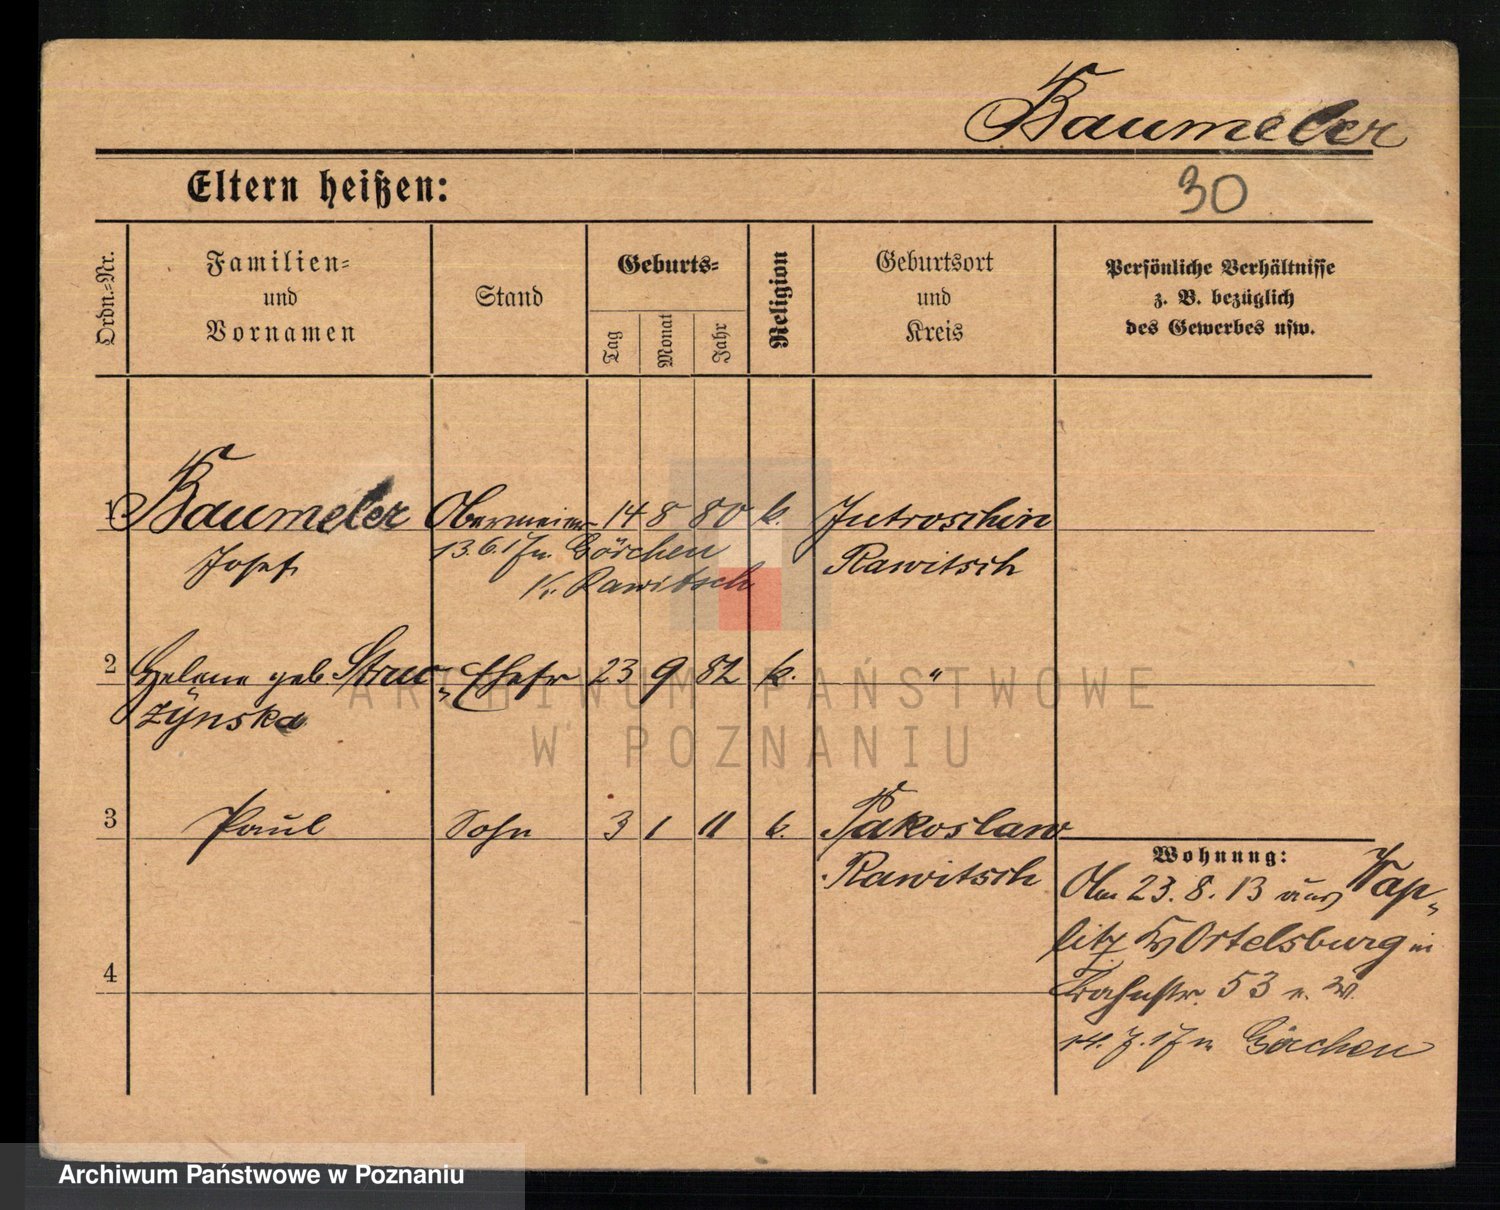 Baumeler
Eltern heißen:
30
Ordn.-Nr.
Familien-
und
Vornamen
Stand
Geburts-
Tag
Monat
Jahr
Religion
Geburtsort
und
Kreis
Persönliche Verhältnisse
z. B. bezüglich
des Gewerbes usw.
1 Baumeler 14 8 80 k. Jutroschin
Josef 13.6.17 n. Görchen Rawitsch
Kr. Rawitsch
2 Helene geb. Struc- Ehefr 23 9 82 k. "
zynska
3 Paul Sohn 3 1 11 k. Pakoslaw
Rawitsch
4
Wohnung:
23.8.13 aus Wap-
litz Kr Ortelsburg in
Bahnstr. 53
14.7.17 n Görchen
ARCHIWUM PAŃSTWOWE
W POZNANIU
Archiwum Państwowe w Poznaniu